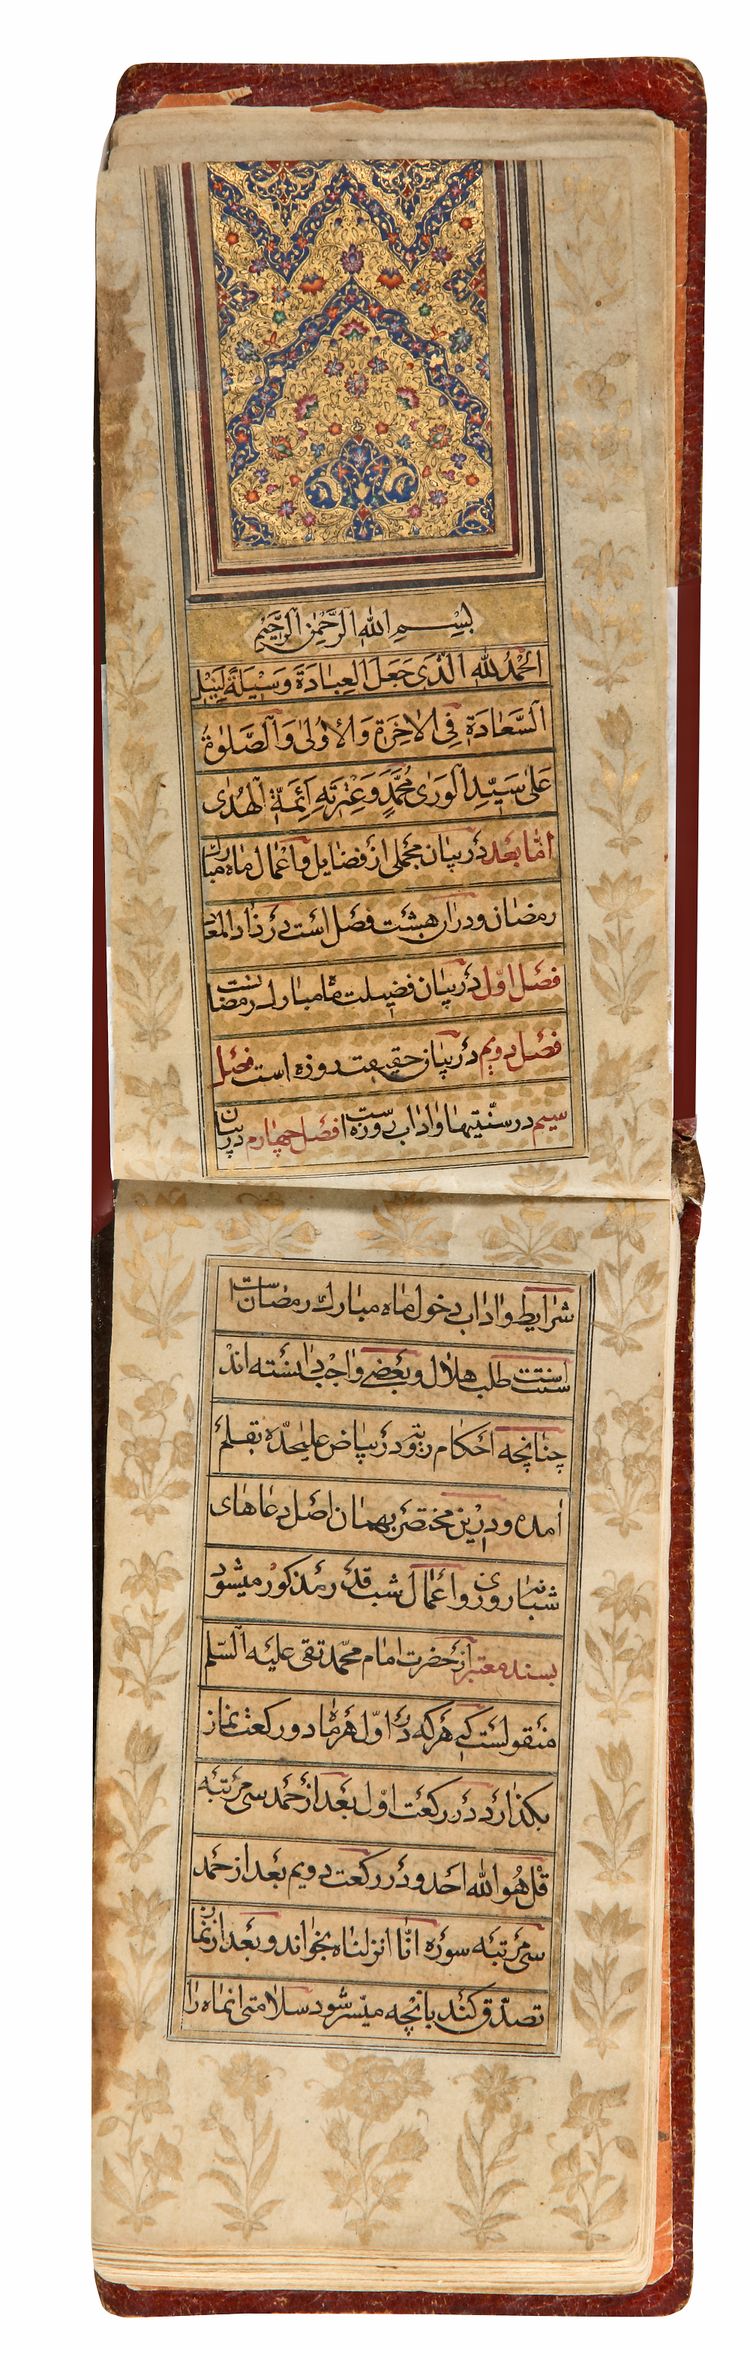 بِسْمِ اللهِ الرَّحْمٰنِ الرَّحِيْمِ
اَلحَمْدُ لِلّٰهِ الَّذى جَعَلَ العِبادَةَ وَسيلَةً لِنَيْلِ
السَّعادَةِ فِى الاٰخِرَةِ وَالاُولٰى وَالصَّلوٰةُ
عَلٰى سَيِّدِ الوَرٰى مُحَمَّدٍ وَعِتْرَتِهِ اَئِمَّةِ الهُدٰى
امّا بعد در بیان مجملی از فضایل و اعمال ماه مبارک
رمضان و در ان هشت فصل است در زاد المعاد
فصل اول در بیان فضیلت ماه مبارک رمضانست
فصل دویم در بیان حقیقت روزه است فصل
سیم در سنّتیها و اداب روزه است فصل چهارم در بیان
شرایط و اداب دخول ماه مبارک رمضانست
سنتست طلب هلال و بعضی واجب دانسته اند
چنانچه احکام در بیاض علیحدّه بقلم
امده و درین مختصر بهمان اصل دعاهای
شبانه روزی و اعمال شب قدر مذکور میشود
بسند معتبر از حضرت امام محمّد تقی علیه السّلم
منقولست که هر که در اوّل هر ماه دو رکعت نماز
بکذارد در رکعت اوّل بعد از حمد سی مرتبه
قل هو الله احد و در رکعت دویم بعد از حمد
سی مرتبه سوره انّا انزلناه بخواند و بعد از نماز
تصدّق کند بانچه میسر شود سلامتی انماه را